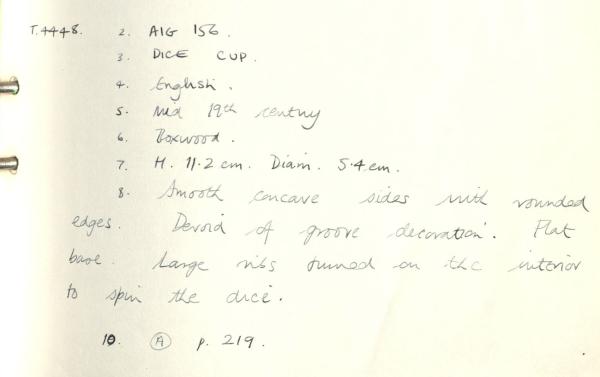 T.4448. 2. AIG 156.
3. DICE CUP.
4. English.
5. Mid 19th century
6. Boxwood.
7. H. 11.2 cm. Diam. 5.4 cm.
8. Smooth concave sides with rounded
edges. Devoid of groove decoration. Flat
base. Large ribs turned on the interior
to spin the dice.
10. (A) p. 219.